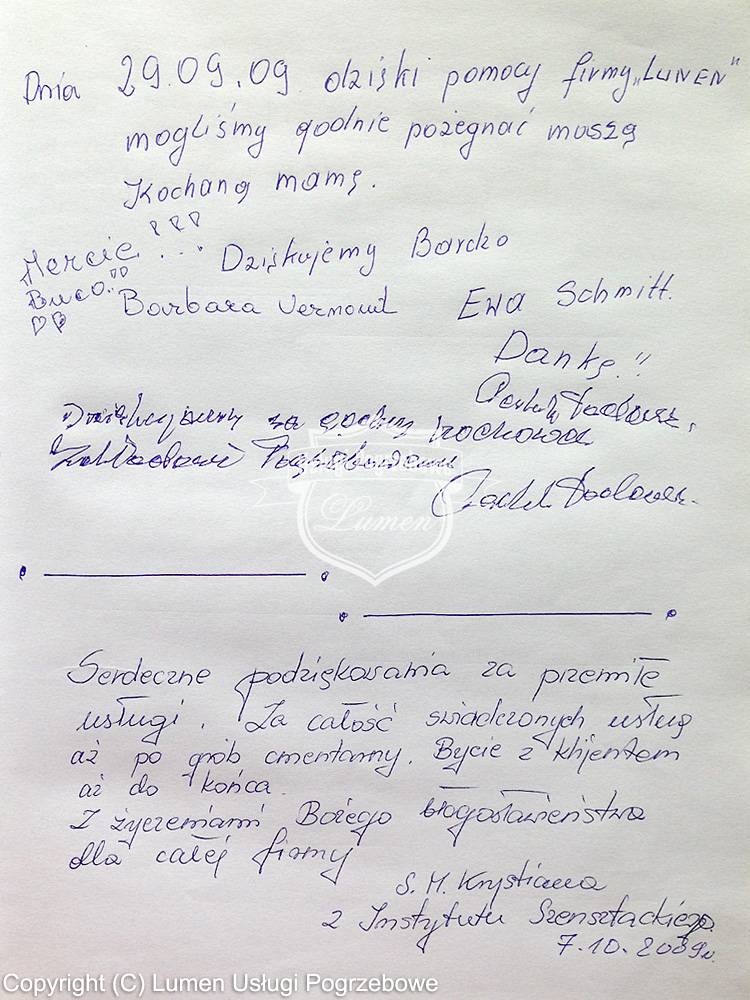 Dnia 29.09.09. dzięki pomocy firmy „LUMEN"
mogliśmy godnie pożegnać naszą
Kochaną mamę.
Mercie !!! ... Dziękujemy Bardzo
Buco..
Barbara Ewa Schmitt.
Danke!!
Dziękujemy za
Lumen
Serdeczne podziękowania za przemiłe
usługi. Za całość świadczonych usług
aż po grób cmentarny. Bycie z klijentem
aż do końca.
Z życzeniami Bożego błogosławieństwa
dla całej firmy
S. M. Krystiana
z Instytutu Szensztackiego
7.10.2009r.
Copyright (C) Lumen Usługi Pogrzebowe